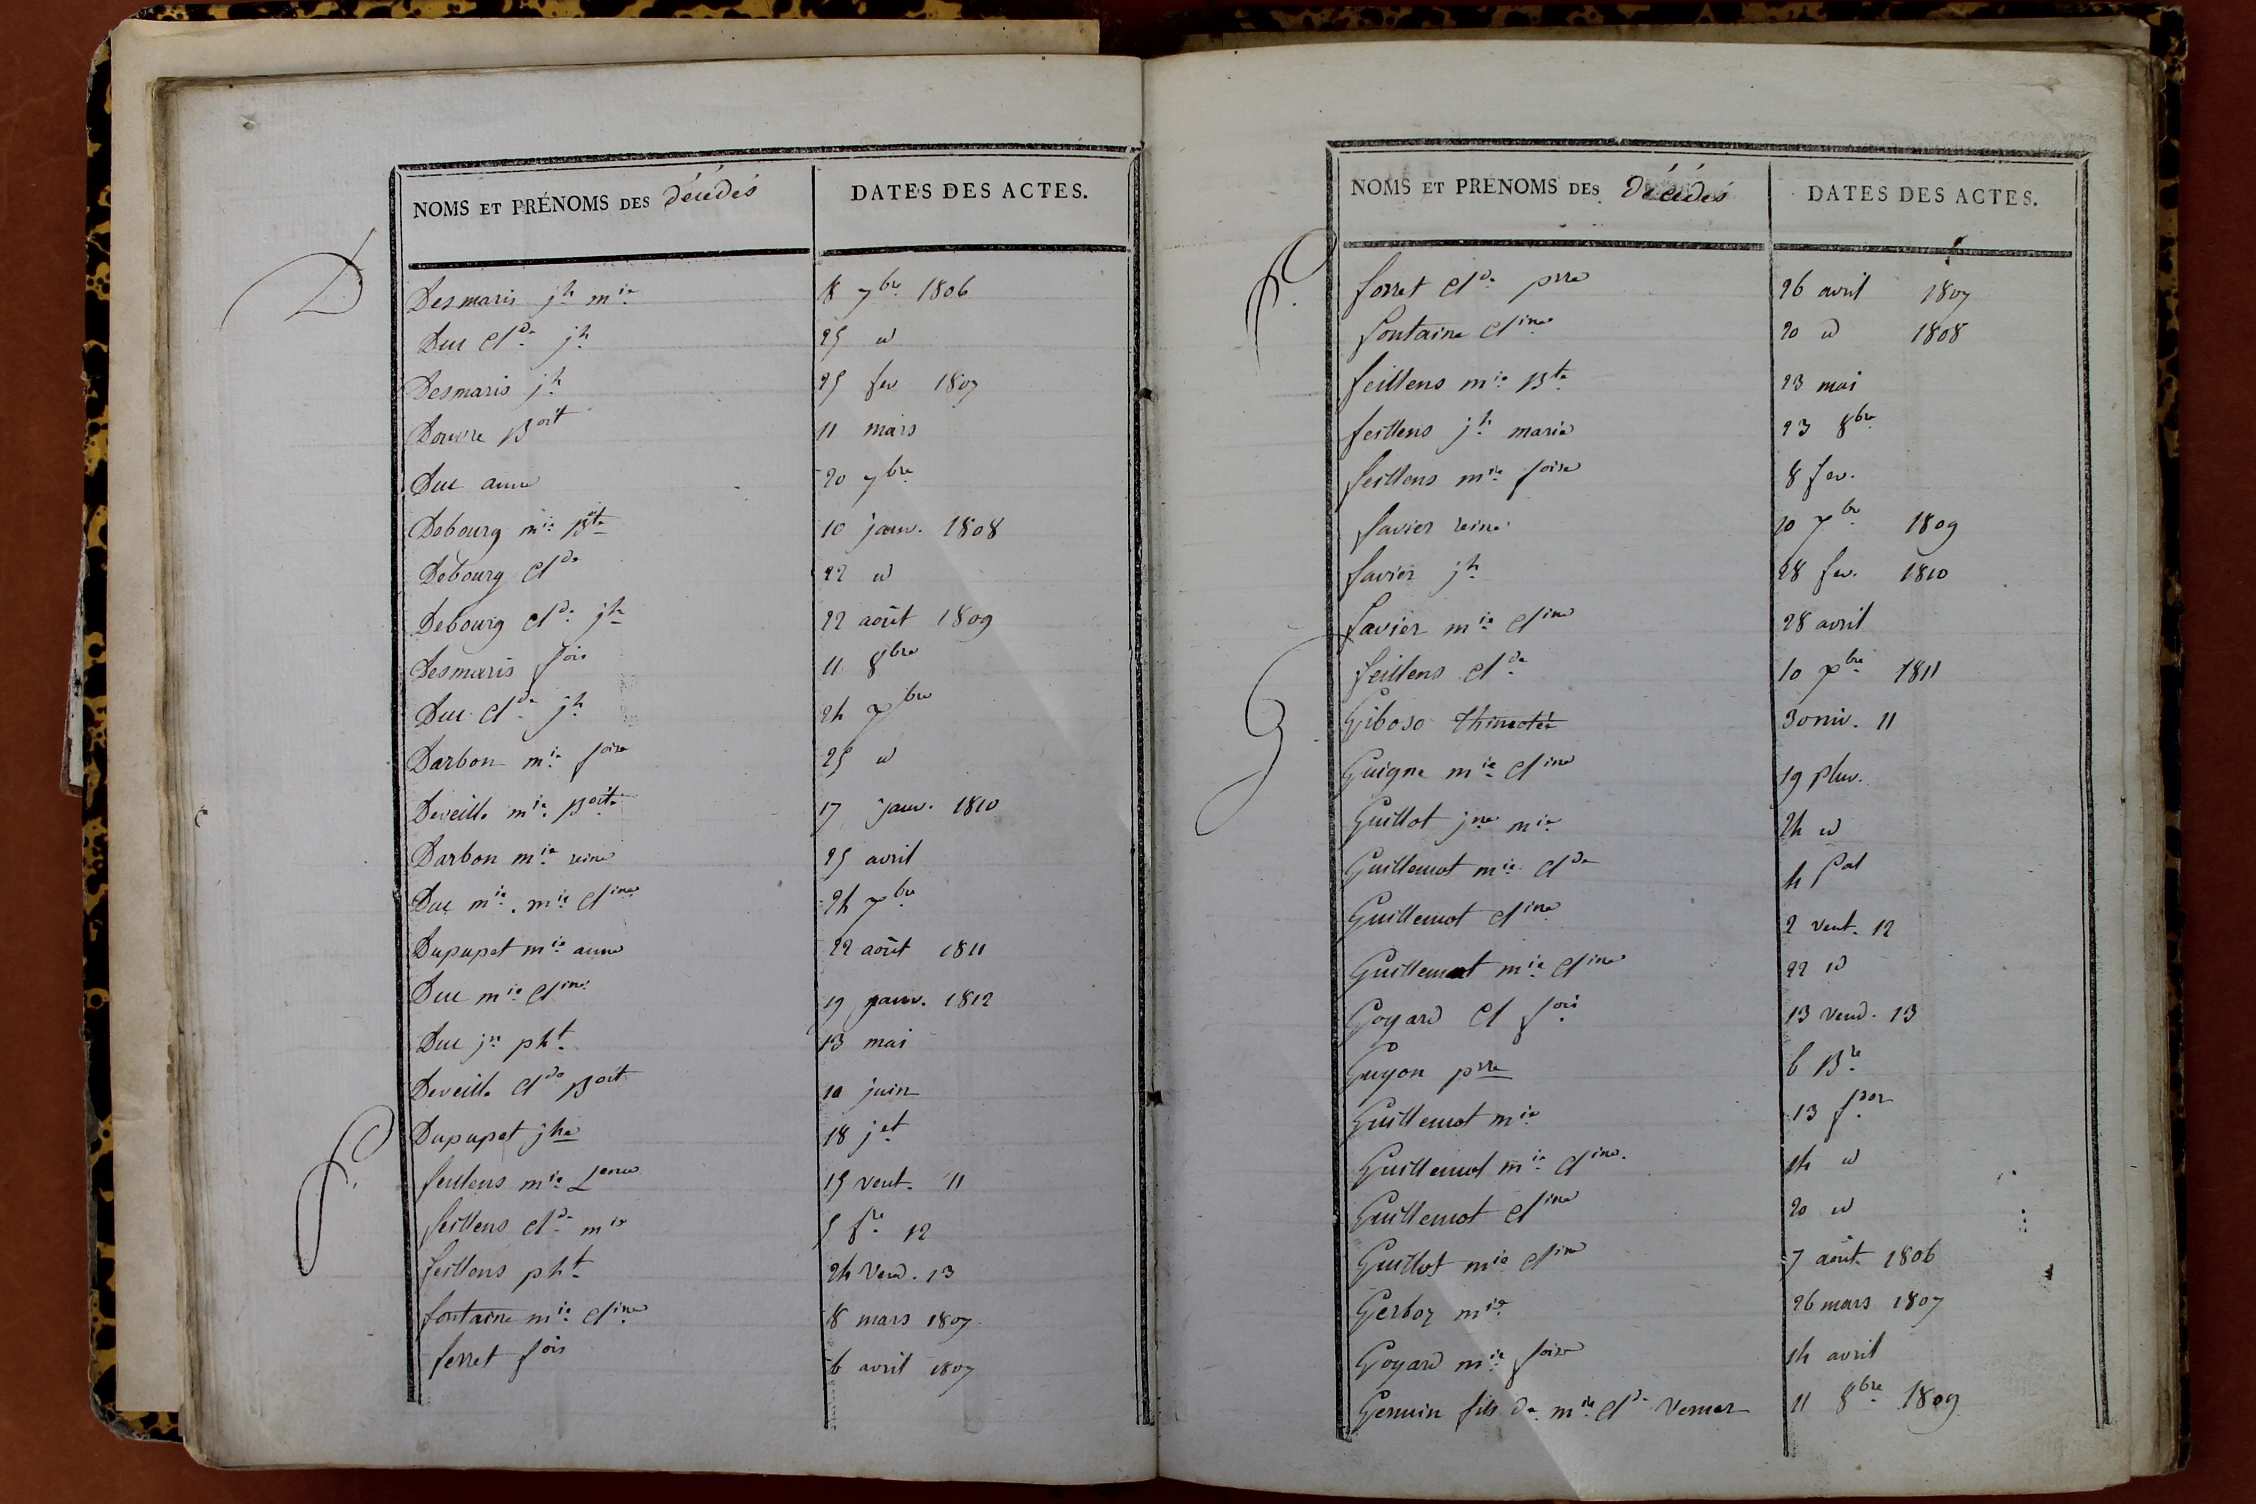 NOMS ET PRÉNOMS DES décédés
DATES DES ACTES.
D
Desmaris jh mie 18 7bre 1806
Duc Cde jh 25 id
Desmaris jh 25 fev 1807
Boit 11 mars
Duc anne 20 7bre
Debourg mie Bte 10 janv. 1808
Debourg Cde 22 id
Debourg Cde jh 22 août 1809
Desmaris fois 11 8bre
Duc Cde jh 24 7bre
Darbon mie foise 25 id
Deveille mie Boite 17 janv. 1810
Darbon mie reine 25 avril
Duc mie. mie Cine 24 7bre
Dupupet mie anne 22 août 1811
Duc mie Cine 19 janv. 1812
Duc jn pht 13 mai
Deveille Cde Boit 10 juin
Dupupet jhe 18 jet
F.
feillens mie 15 vent. 11
feillens Cde mie 5 fre 12
feillens pht 24 Vend. 13
fontaine mie Cine 18 mars 1807
ferret fois 6 avril 1807
NOMS ET PRÉNOMS DES décédés
DATES DES ACTES.
F.
forret Cde prre 26 avril 1807
fontaine Cine 20 id 1808
feillens mie Bte 23 mai
feillens jh marie 23 8bre
feillens mie foise 8 fev.
favier reine 10 7bre 1809
favier jh 28 fev. 1810
favier mie Cine 28 avril
feillens Cde 10 7bre 1811
G
Giboso thimotée 30 niv. 11
Guigne mie Cine 19 pluv.
Guillot jne mie 24 id
Guillemot mie Cde 4
Guillemot Cine 2 vent. 12
Guillemot mie Cine 22 id
Goyard Cl fois 13 vend. 13
Guyon prre 6 Bre
Guillemot mie 13
Guillemot mie Cine. 14 id
Guillemot Cine 20 id
Guillot mie Cine 7 août 1806
Gerboz mie 26 mars 1807
Goyard mie foise 14 avril
fils de mie Cde 11 8bre 1809